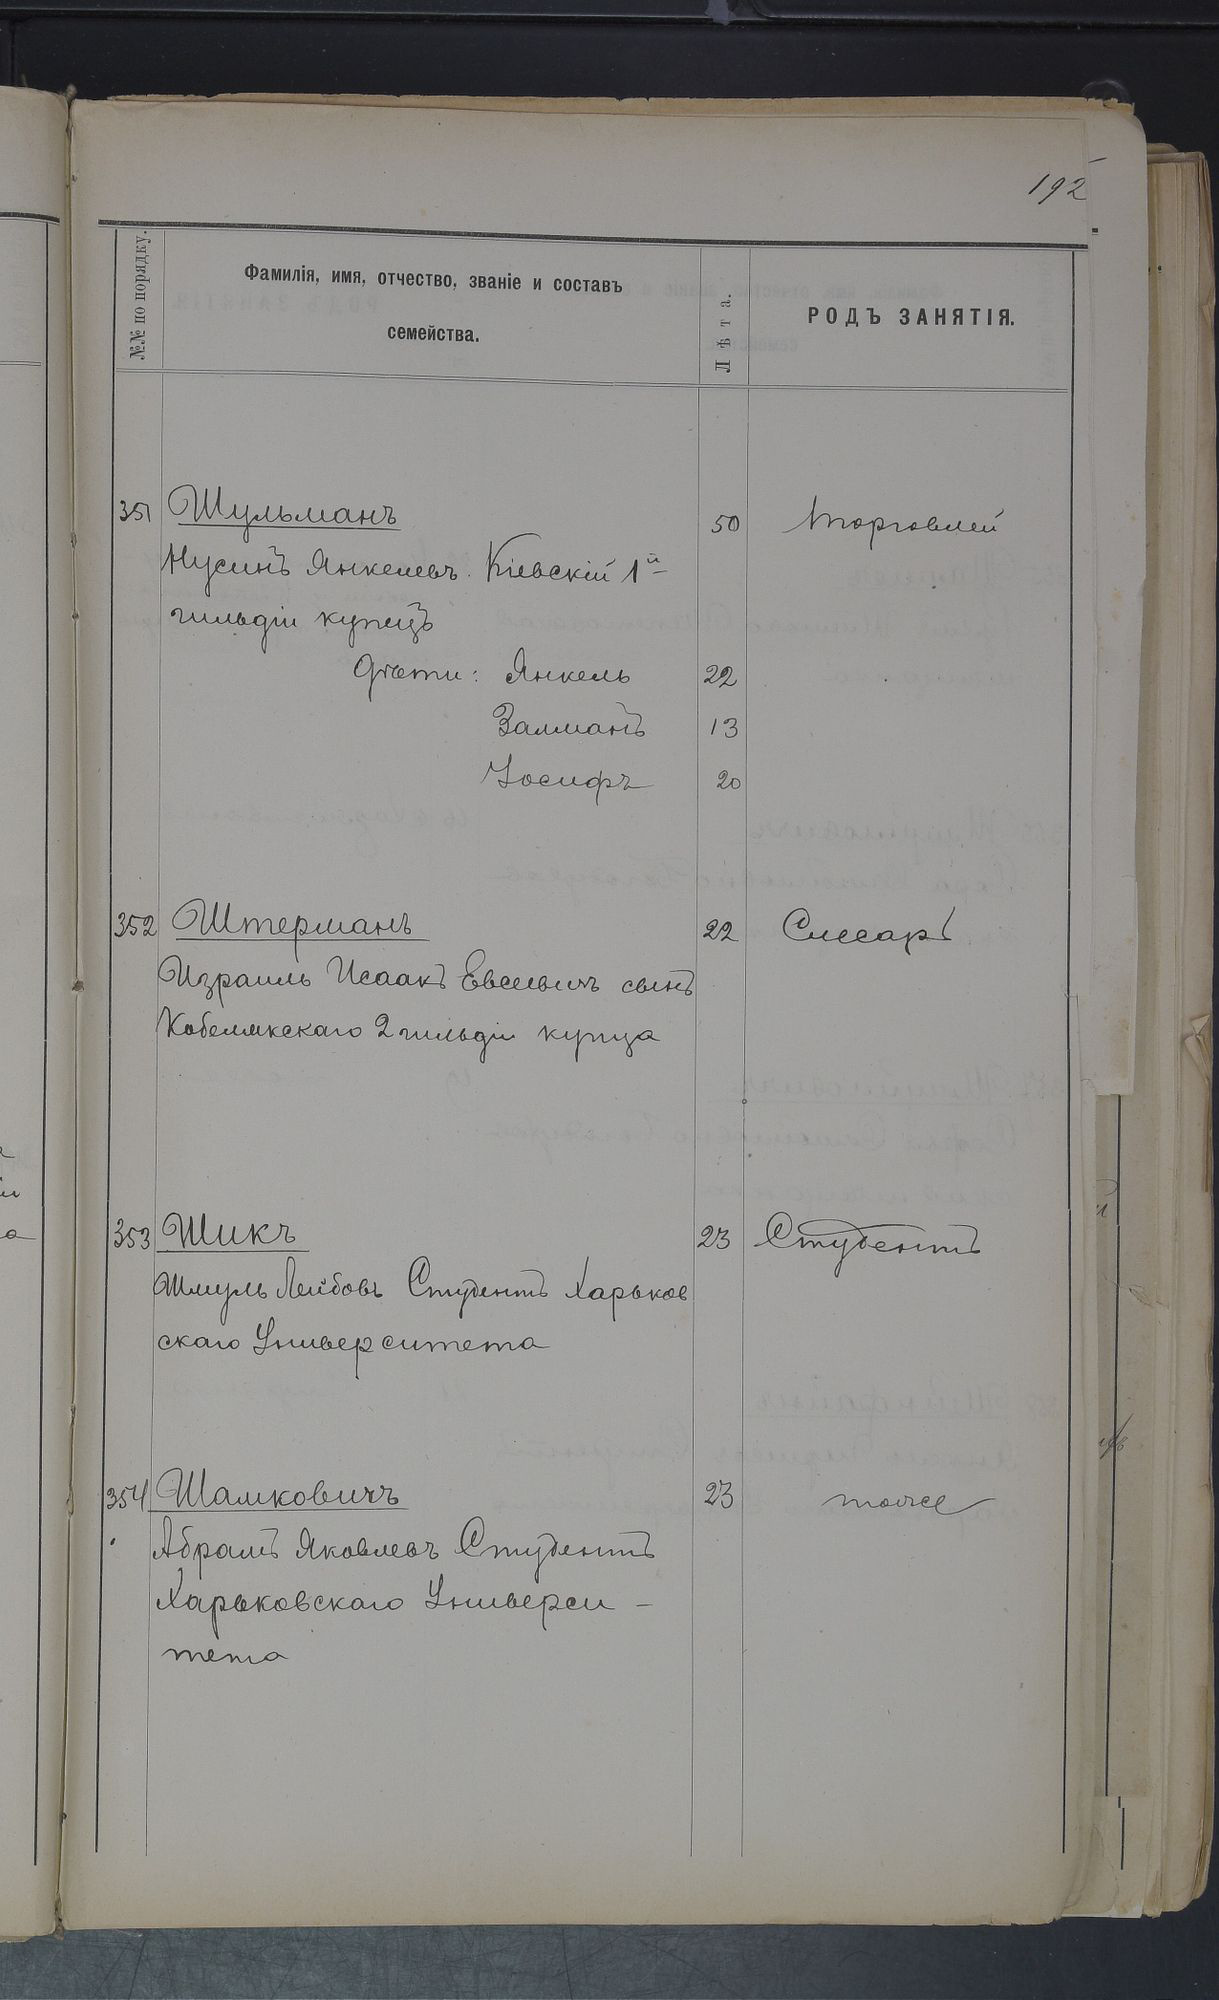 192
№№ по порядку.
Фамилія, имя, отчество, званіе и составъ
семейства.
Лѣта.
РОДЪ ЗАНЯТІЯ.
351 Шульманъ 50 торговлей
Нусинъ Янкелевъ. Кіевскій 1й
гильдіи купецъ
Дѣти: Янкель 22
Залманъ 13
Іосифъ 20
352 Штерманъ 22 Слесарь
Израиль Исаакъ Евсеевичъ сынъ
Кобелякскаго 2 гильдіи купца
353 Шикъ 23 Студентъ
Шмуль Лейбовъ Студентъ Харьков
скаго Университета
354 Шамковичъ 23 тоже
Абрамъ Яковлевъ Студентъ
Харьковскаго Универси-
тета